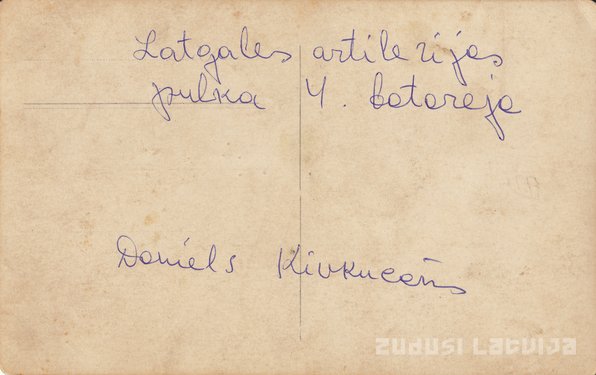 Latgales artilerijas
pulka 4. batareja
Daniels Kivkucāns
ZUDUSI LATVIJA